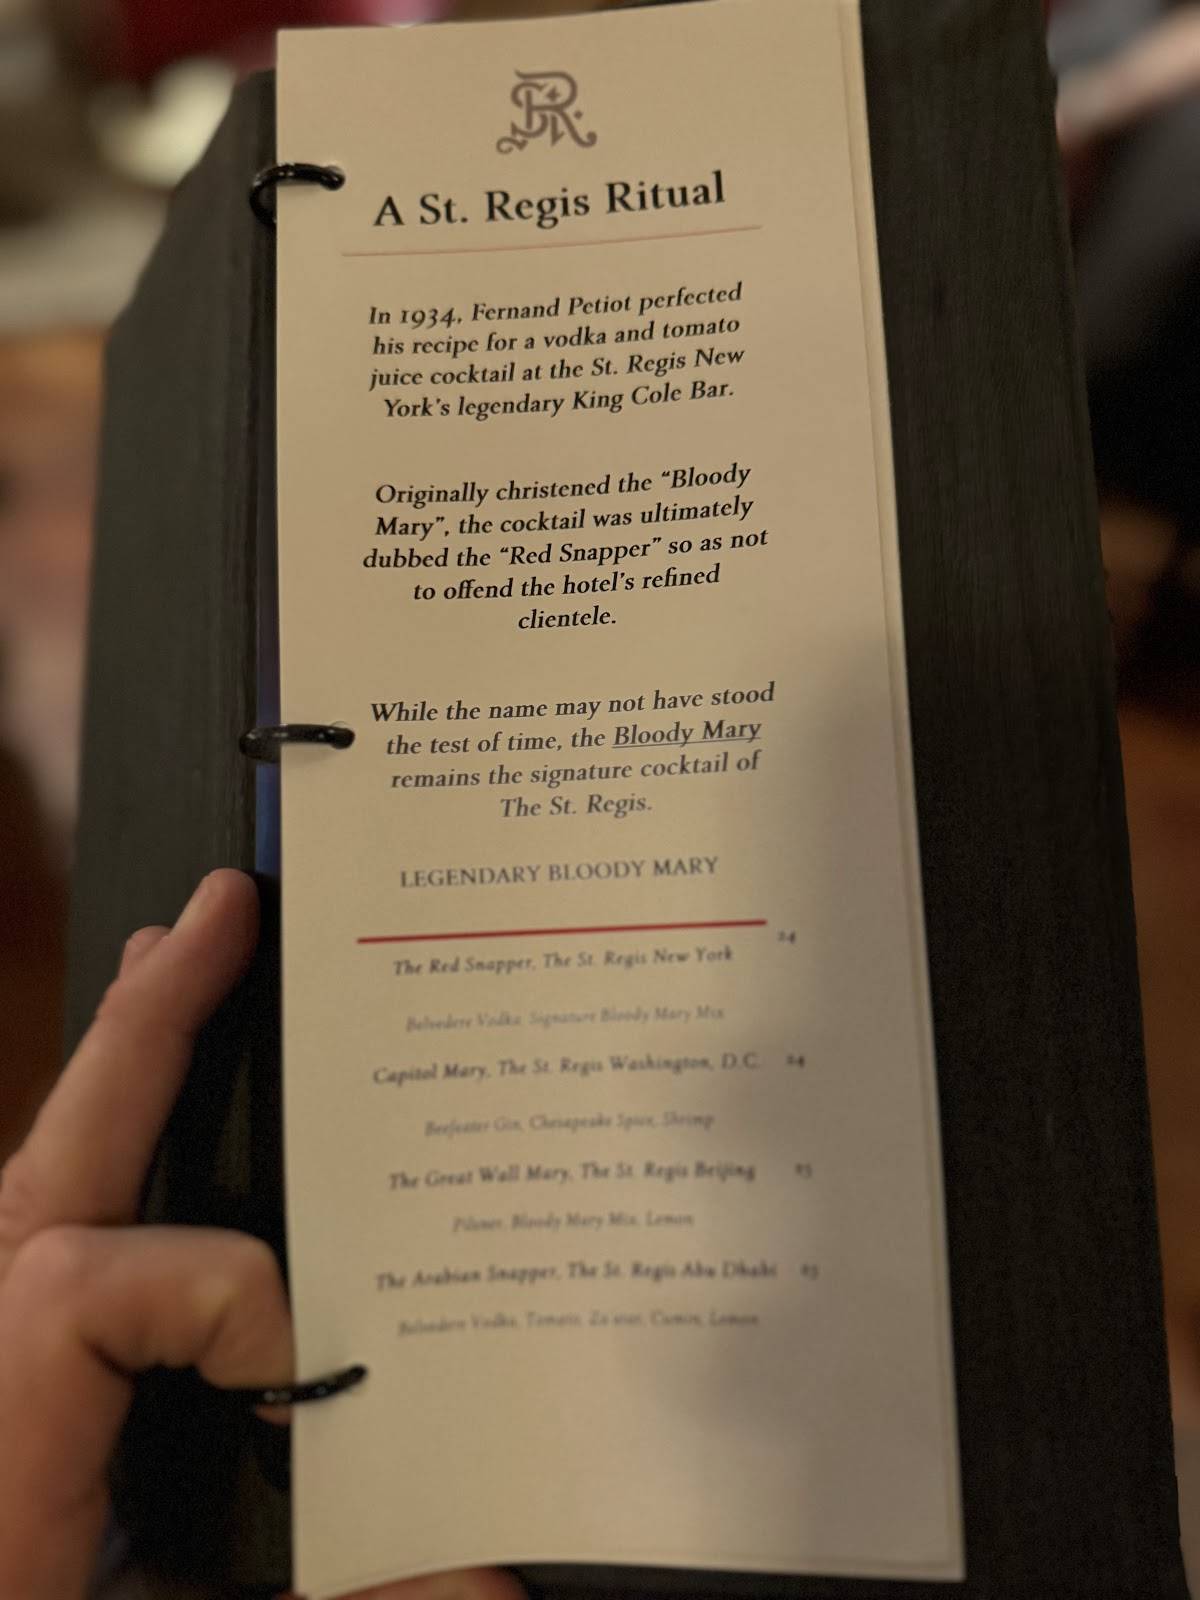 A St. Regis Ritual
In 1934, Fernand Petiot perfected
his recipe for a vodka and tomato
juice cocktail at the St. Regis New
York's legendary King Cole Bar.
Originally christened the "Bloody
Mary", the cocktail was ultimately
dubbed the "Red Snapper" so as not
to offend the hotel's refined
clientele.
While the name may not have stood
the test of time, the Bloody Mary
remains the signature cocktail of
The St. Regis.
LEGENDARY BLOODY MARY
The Red Snapper, The St. Regis New York 24
Belvedere Vodka, Signature Bloody Mary Mix
Capitol Mary, The St. Regis Washington, D.C. 24
Beefeater Gin, Chesapeake Spice, Shrimp
The Great Wall Mary, The St. Regis Beijing
Pilsner, Bloody Mary Mix, Lemon
The Arabian Snapper, The St. Regis Abu Dhabi
Belvedere Vodka, Tomato, Za'atar, Cumin, Lemon